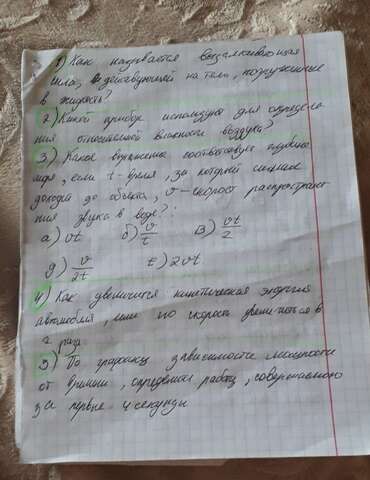 1) Как называется выталкивающая
сила, действующей на тела, погруженные
в жидкость?
2) Какой прибор используют для определе
ния относительной влажности воздуха?
3) Какое выражение соответствует глубине
моря, если t - время, за который сигнал
доходит до объекта, v - скорость распространт
ния звука в воде?:
а) vt б) v/t в) vt/2
д) v/2t е) 2vt
4) Как увеличится кинетическая энергия
автомобиля, если его скорость увеличится в
2 раза
5) По графику зависимости мощности
от времени, определите работу, совершаемого
за первые 4 секунды